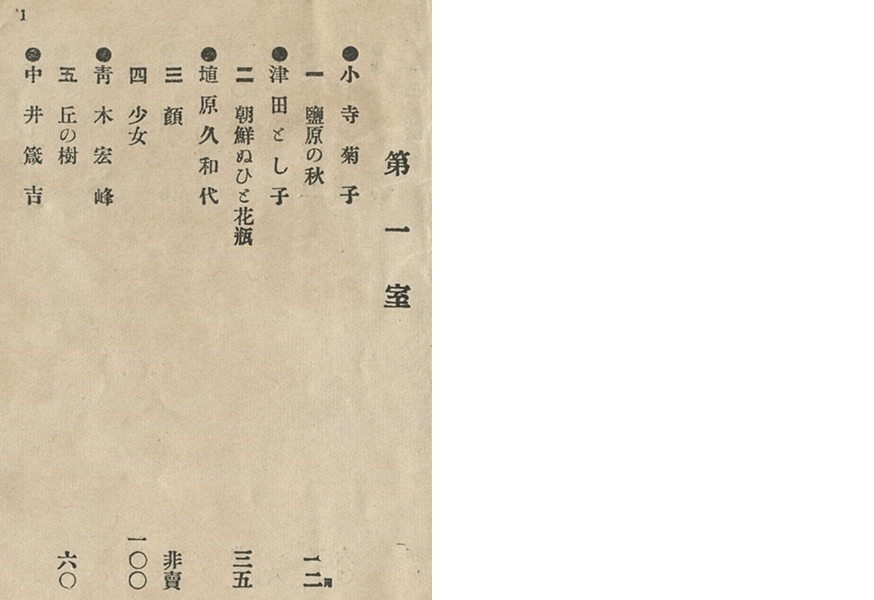 1
第一室
●小寺菊子
一 鹽原の秋 一二円
●津田とし子
二 朝鮮ぬひと花瓶 三五
●埴原久和代
三 顏 非賣
四 少女 一〇〇
●靑木宏峰
五 丘の樹 六〇
●中井箴吉